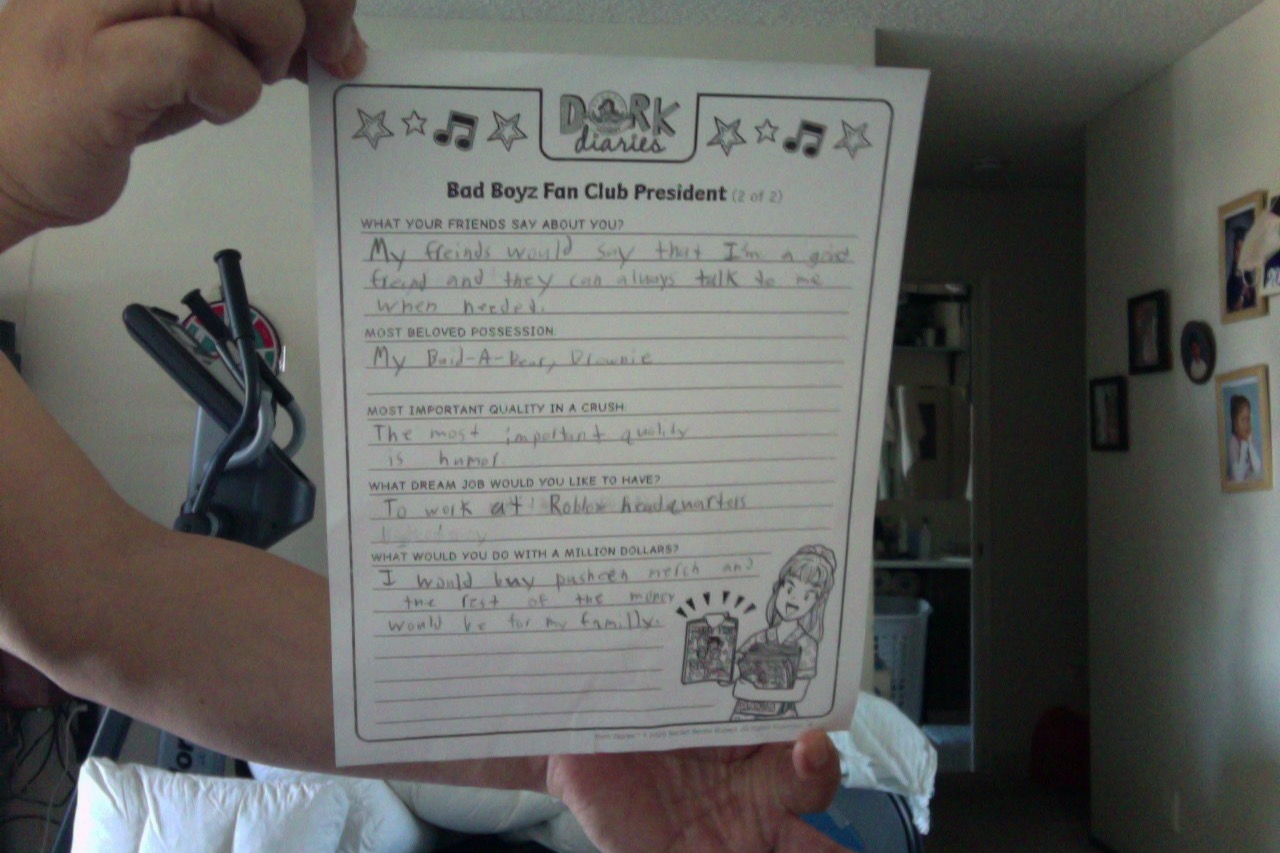 DORK
diaries
Bad Boyz Fan Club President (2 of 2)
WHAT YOUR FRIENDS SAY ABOUT YOU?
My freinds would say that I'm a
freind and they can always talk to me
when needed.
MOST BELOVED POSSESSION:
My Buid-A-Bear, Brownie
MOST IMPORTANT QUALITY IN A CRUSH:
The most important quality
is humor.
WHAT DREAM JOB WOULD YOU LIKE TO HAVE?
To work at Roblox headquarters
WHAT WOULD YOU DO WITH A MILLION DOLLARS?
I would buy pusheen merch and
the rest of the money
would be for my familly.